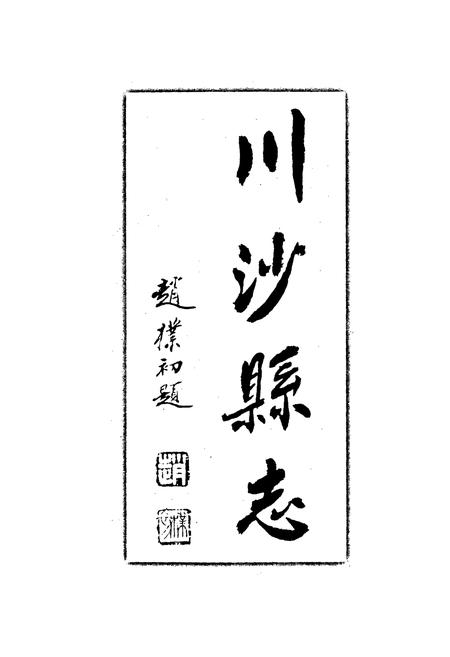 川沙縣志
趙樸初題
趙
樸初